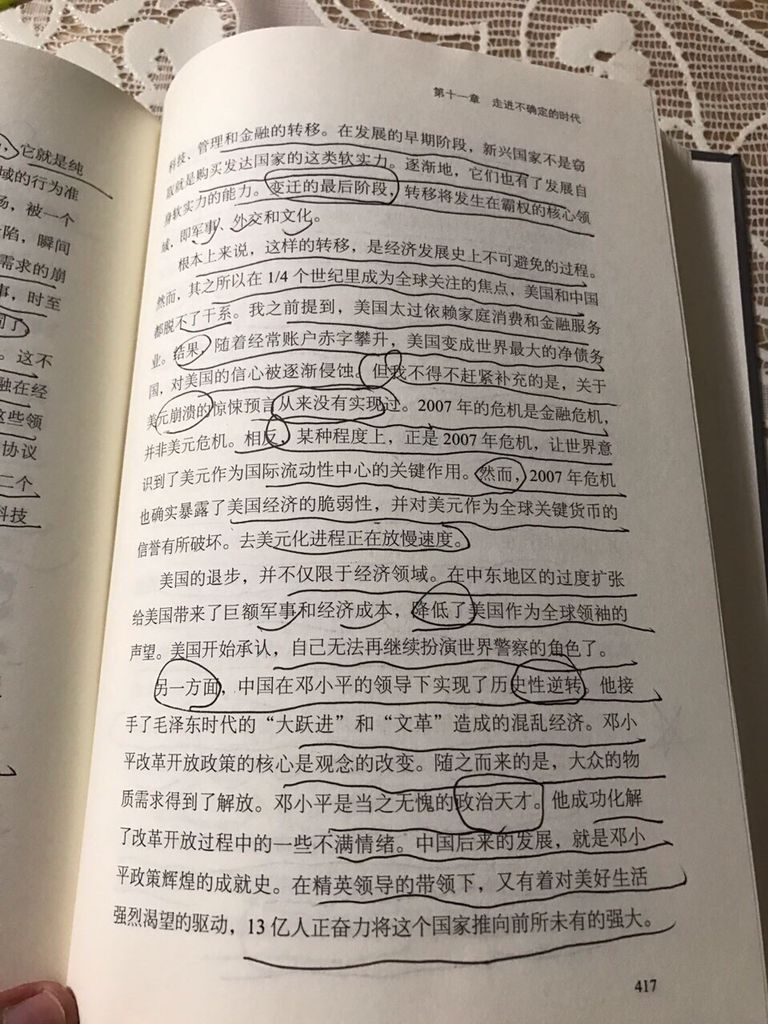 ，它就是纯
域的行为准
场，被一个
陷，瞬间
需求的崩
事，时至
。这不
融在经
这些领
协议
二个
科技
第十一章 走进不确定的时代
科技、管理和金融的转移。在发展的早期阶段，新兴国家不是窃
取就是购买发达国家的这类软实力。逐渐地，它们也有了发展自
身软实力的能力。变迁的最后阶段，转移将发生在霸权的核心领
域，即军事、外交和文化。
根本上来说，这样的转移，是经济发展史上不可避免的过程。
然而，其之所以在 1/4 个世纪里成为全球关注的焦点，美国和中国
都脱不了干系。我之前提到，美国太过依赖家庭消费和金融服务
业。结果，随着经常账户赤字攀升，美国变成世界最大的净债务
国，对美国的信心被逐渐侵蚀。但我不得不赶紧补充的是，关于
美元崩溃的惊悚预言从来没有实现过。2007 年的危机是金融危机，
并非美元危机。相反，某种程度上，正是 2007 年危机，让世界意
识到了美元作为国际流动性中心的关键作用。然而，2007 年危机
也确实暴露了美国经济的脆弱性，并对美元作为全球关键货币的
信誉有所破坏。去美元化进程正在放慢速度。
美国的退步，并不仅限于经济领域。在中东地区的过度扩张
给美国带来了巨额军事和经济成本，降低了美国作为全球领袖的
声望。美国开始承认，自己无法再继续扮演世界警察的角色了。
另一方面，中国在邓小平的领导下实现了历史性逆转。他接
手了毛泽东时代的“大跃进”和“文革”造成的混乱经济。邓小
平改革开放政策的核心是观念的改变。随之而来的是，大众的物
质需求得到了解放。邓小平是当之无愧的政治天才。他成功化解
了改革开放过程中的一些不满情绪。中国后来的发展，就是邓小
平政策辉煌的成就史。在精英领导的带领下，又有着对美好生活
强烈渴望的驱动，13 亿人正奋力将这个国家推向前所未有的强大。
417